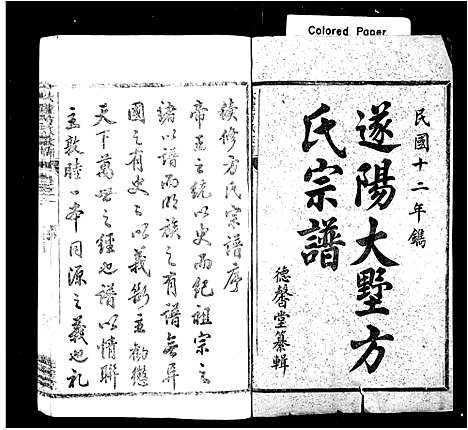 Colored Paper
民國十二年鐫
遂陽大墅方
氏宗譜
德馨堂纂輯
續修方氏宗譜序
帝王之統以史而紀祖宗之
諸以譜而明族之有譜無異
國之有史之以義物主勸懲
天下萬世之經也譜以情聯
主敦睦一本同源之義也礼